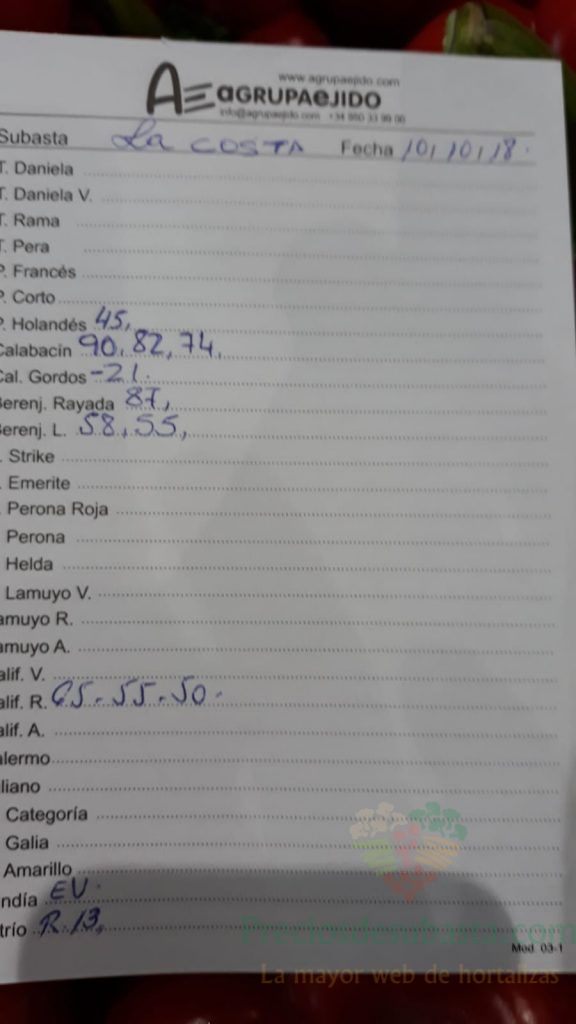 www.agrupaejido.com
AE aGRUPAeJIDO
info@agrupaejido.com +34 950 33 99 00
Subasta La COSTA Fecha 10, 10, 18.
T. Daniela
T. Daniela V.
T. Rama
T. Pera
P. Francés
P. Corto
P. Holandés 45,
Calabacín 90, 82, 74,
Cal. Gordos -21.
Berenj. Rayada 87,
Berenj. L. 58, 55,
. Strike
. Emerite
. Perona Roja
Perona
Helda
Lamuyo V.
amuyo R.
amuyo A.
alif. V.
alif. R. 65. 55. 50.
alif. A.
alermo
liano
Categoría
Galia
Amarillo
ndía EU.
trío R. 13,
Preciosdesubasta.com
Mod. 03-1
La mayor web de hortalizas